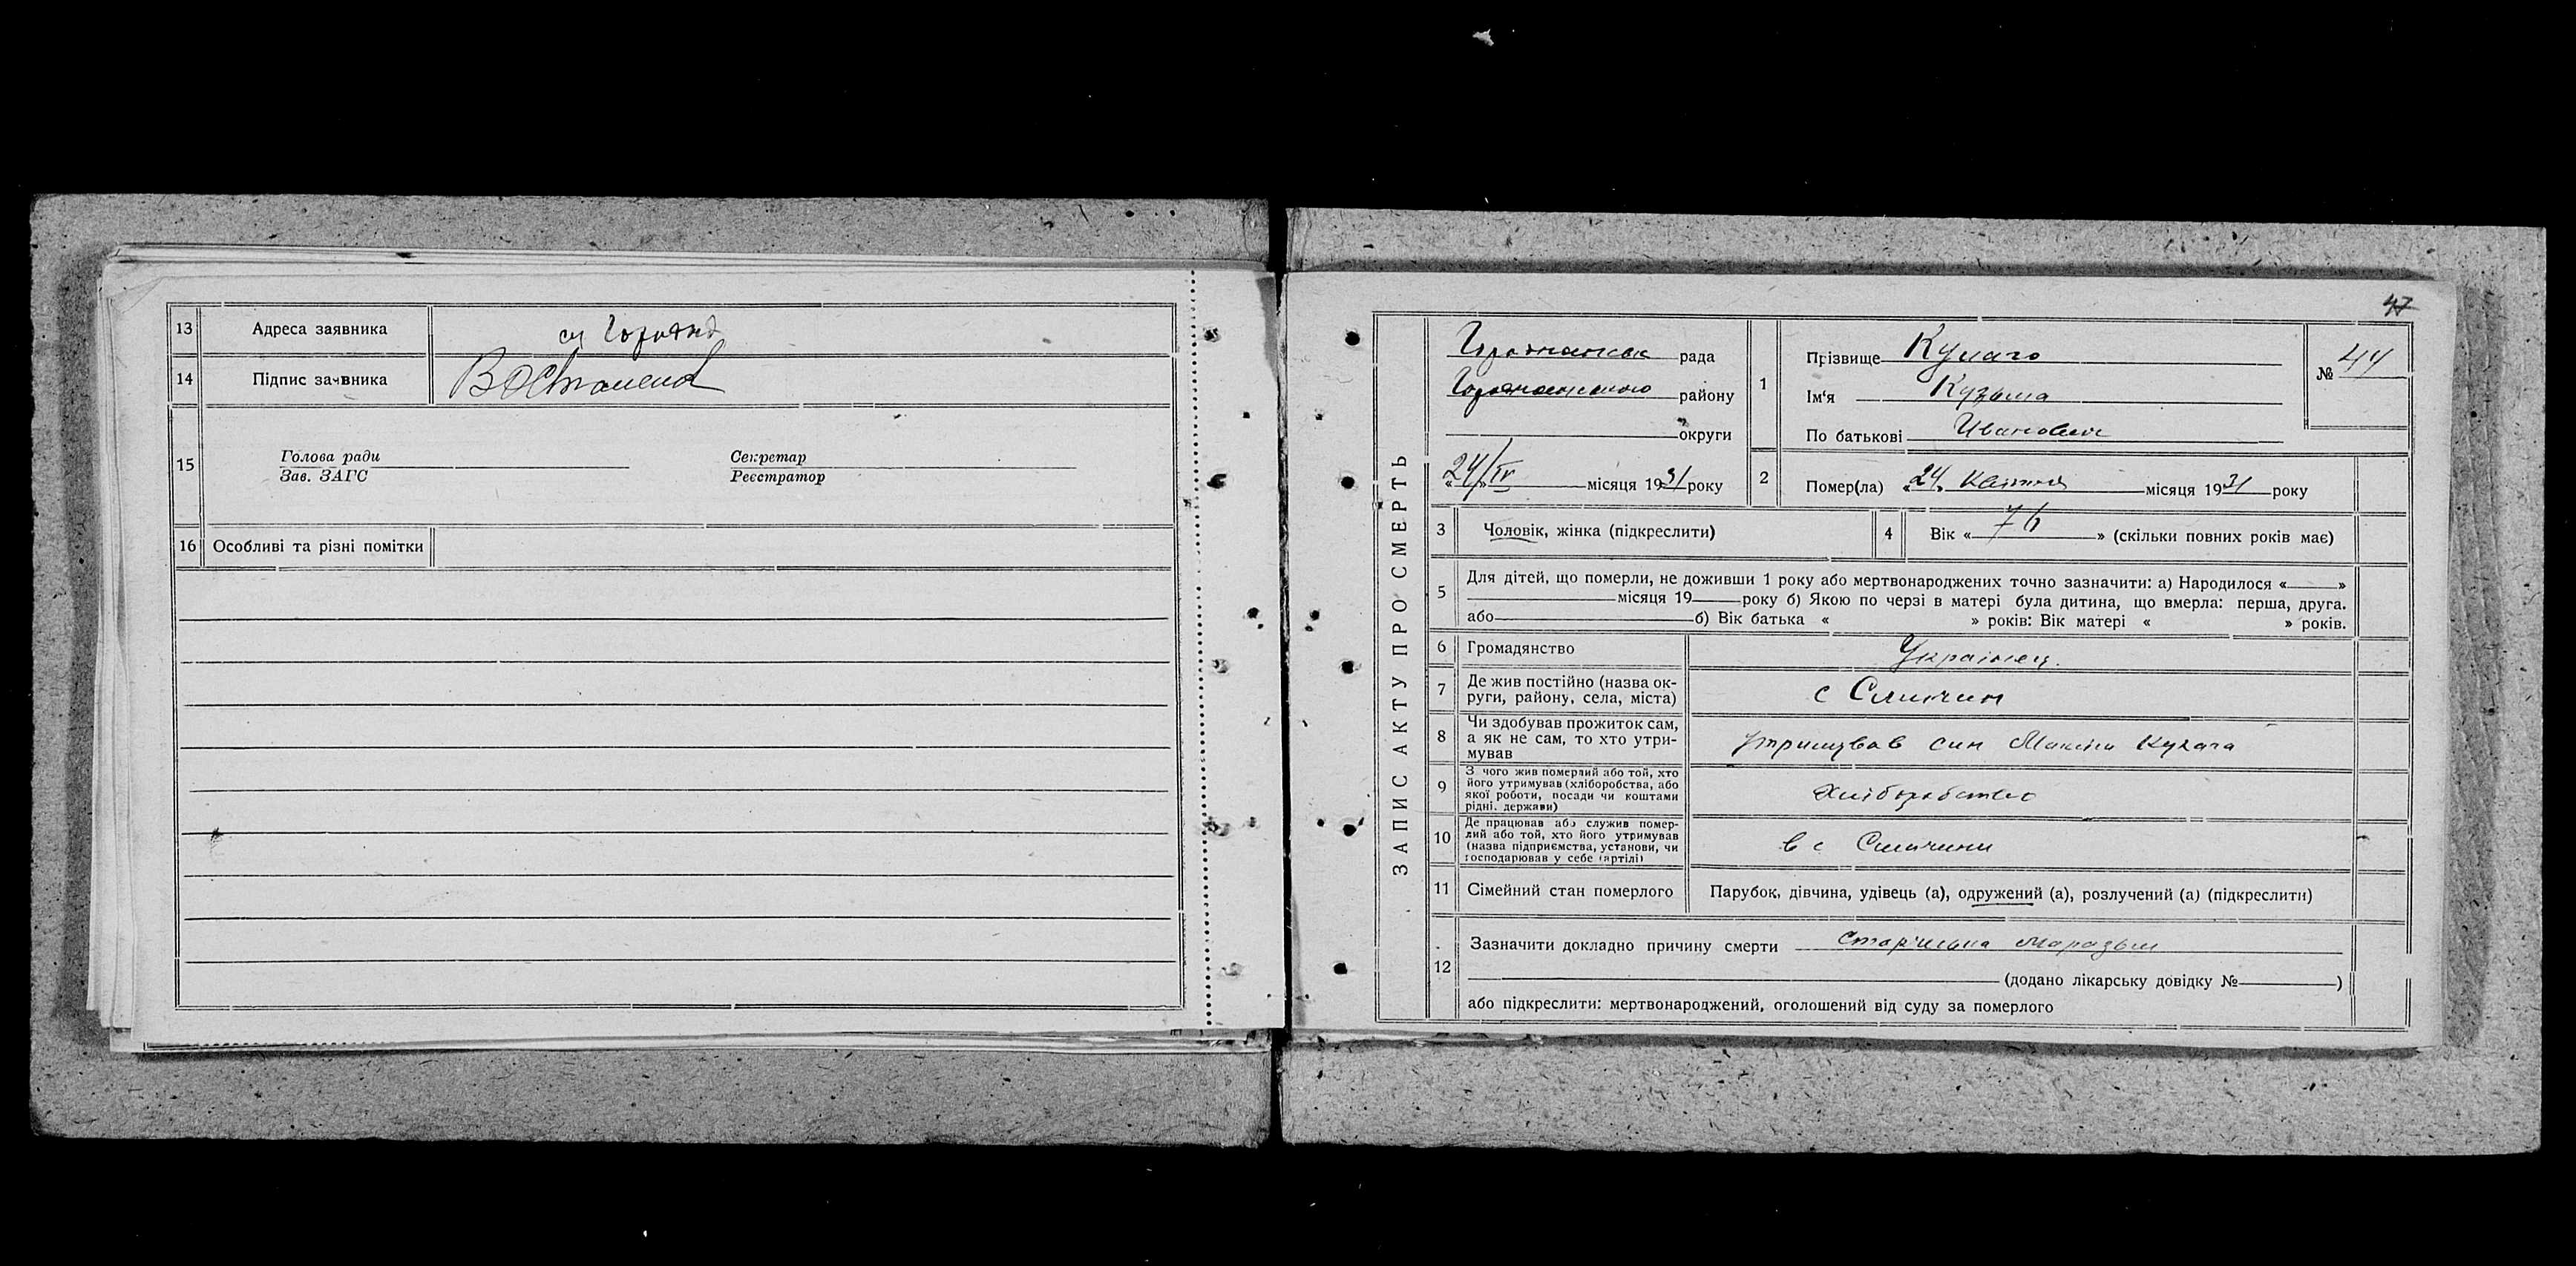 13 Адреса заявника
14 Підпис заявника
15 Голова ради Секретар
Зав. ЗАГС Реєстратор
16 Особливі та різні помітки
47
ЗАПИС АКТУ ПРО СМЕРТЬ
рада
району
округи
24/IV місяця 1931 року
1 Прізвище
Ім'я Кузьма
По батькові Иванович
№ 44
2 Помер(ла) «24» квітня місяця 1931 року
3 Чоловік, жінка (підкреслити)
4 Вік «76» (скільки повних років має)
5 Для дітей, що померли, не доживши 1 року або мертвонароджених точно зазначити: а) Народилося « »
місяця 19 року б) Якою по черзі в матері була дитина, що вмерла: перша, друга.
або б) Вік батька « » років: Вік матері « » років.
6 Громадянство Украінец.
7 Де жив постійно (назва ок-
руги, району, села, міста) с
8 Чи здобував прожиток сам,
а як не сам, то хто утри-
мував утримував син
9 З чого жив померлий або той, хто
його утримував (хліборобства, або
якої роботи, посади чи коштами
рідні, держави) Хліборобство
10 Де працював або служив помер-
лий або той, хто його утримував
(назва підприємства, установи, чи
господарював у себе (артілі) в с
11 Сімейний стан померлого Парубок, дівчина, удівець (а), одружений (а), розлучений (а) (підкреслити)
12 Зазначити докладно причину смерти
(додано лікарську довідку № )
або підкреслити: мертвонароджений, оголошений від суду за померлого